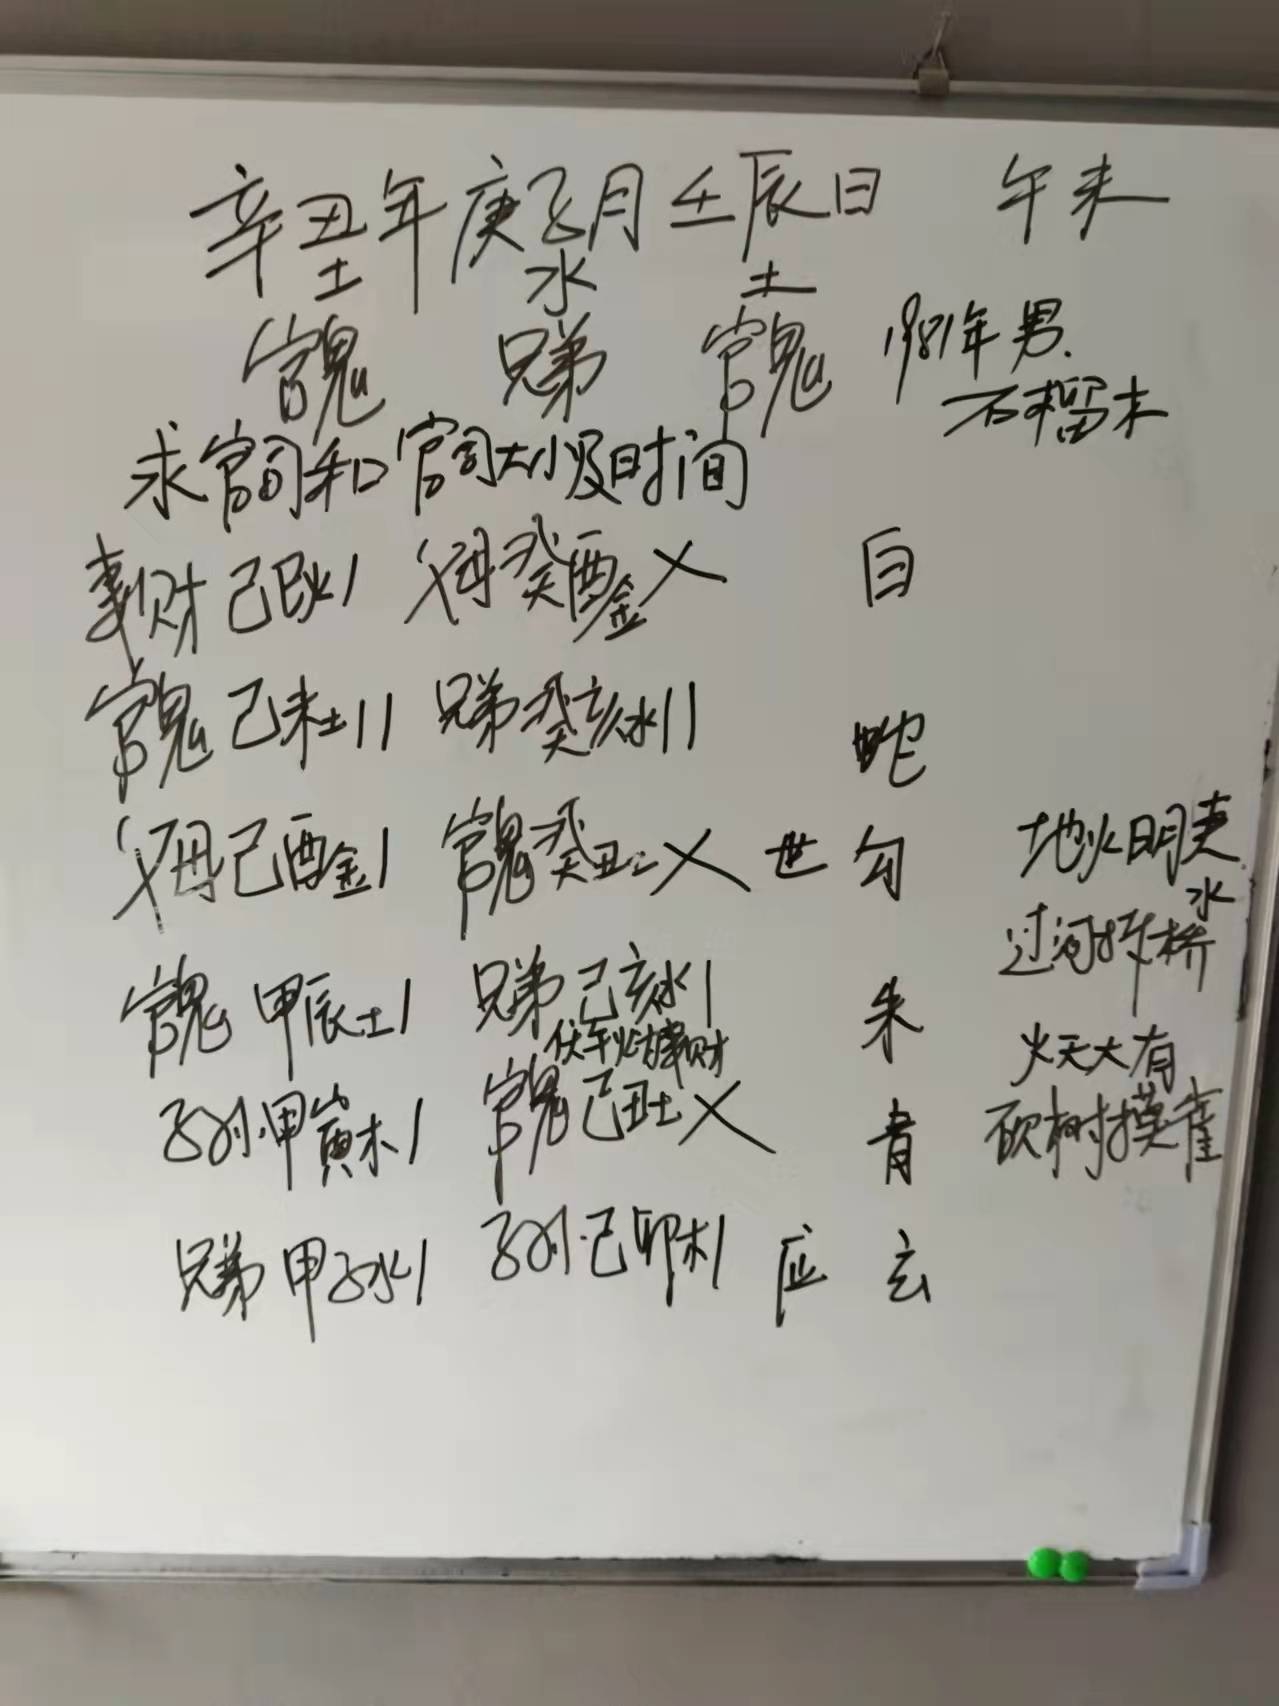 辛丑年庚子月壬辰日 午未
土 水 土
官鬼 兄弟 官鬼 1981年男.
石榴木
求官司和官司大小及时间
妻财己巳火1 父母癸酉金X 白
官鬼己未土11 兄弟癸亥水11 蛇
父母己酉金1 官鬼癸丑土X 世 勾 地火明夷
水
过河拆桥
官鬼甲辰土1 兄弟己亥水1 朱
伏午火妻财 火天大有
子孙.甲寅木1 官鬼己丑土X 青 砍树摸雀
兄弟甲子水1 子孙.己卯木1 应 玄